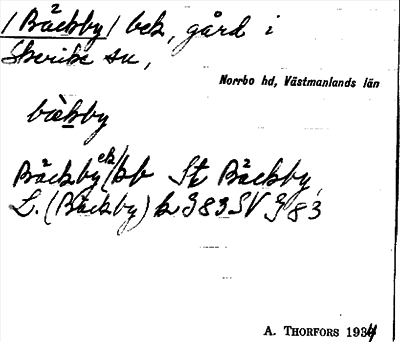 /Bäckby/ bek, gård i
Skerike sn,
Norrbo hd, Västmanlands län
bäkby
Bäckby ek/bb St Bäckby,
L. (Bäckby) k G83SV G83
A. THORFORS 1934